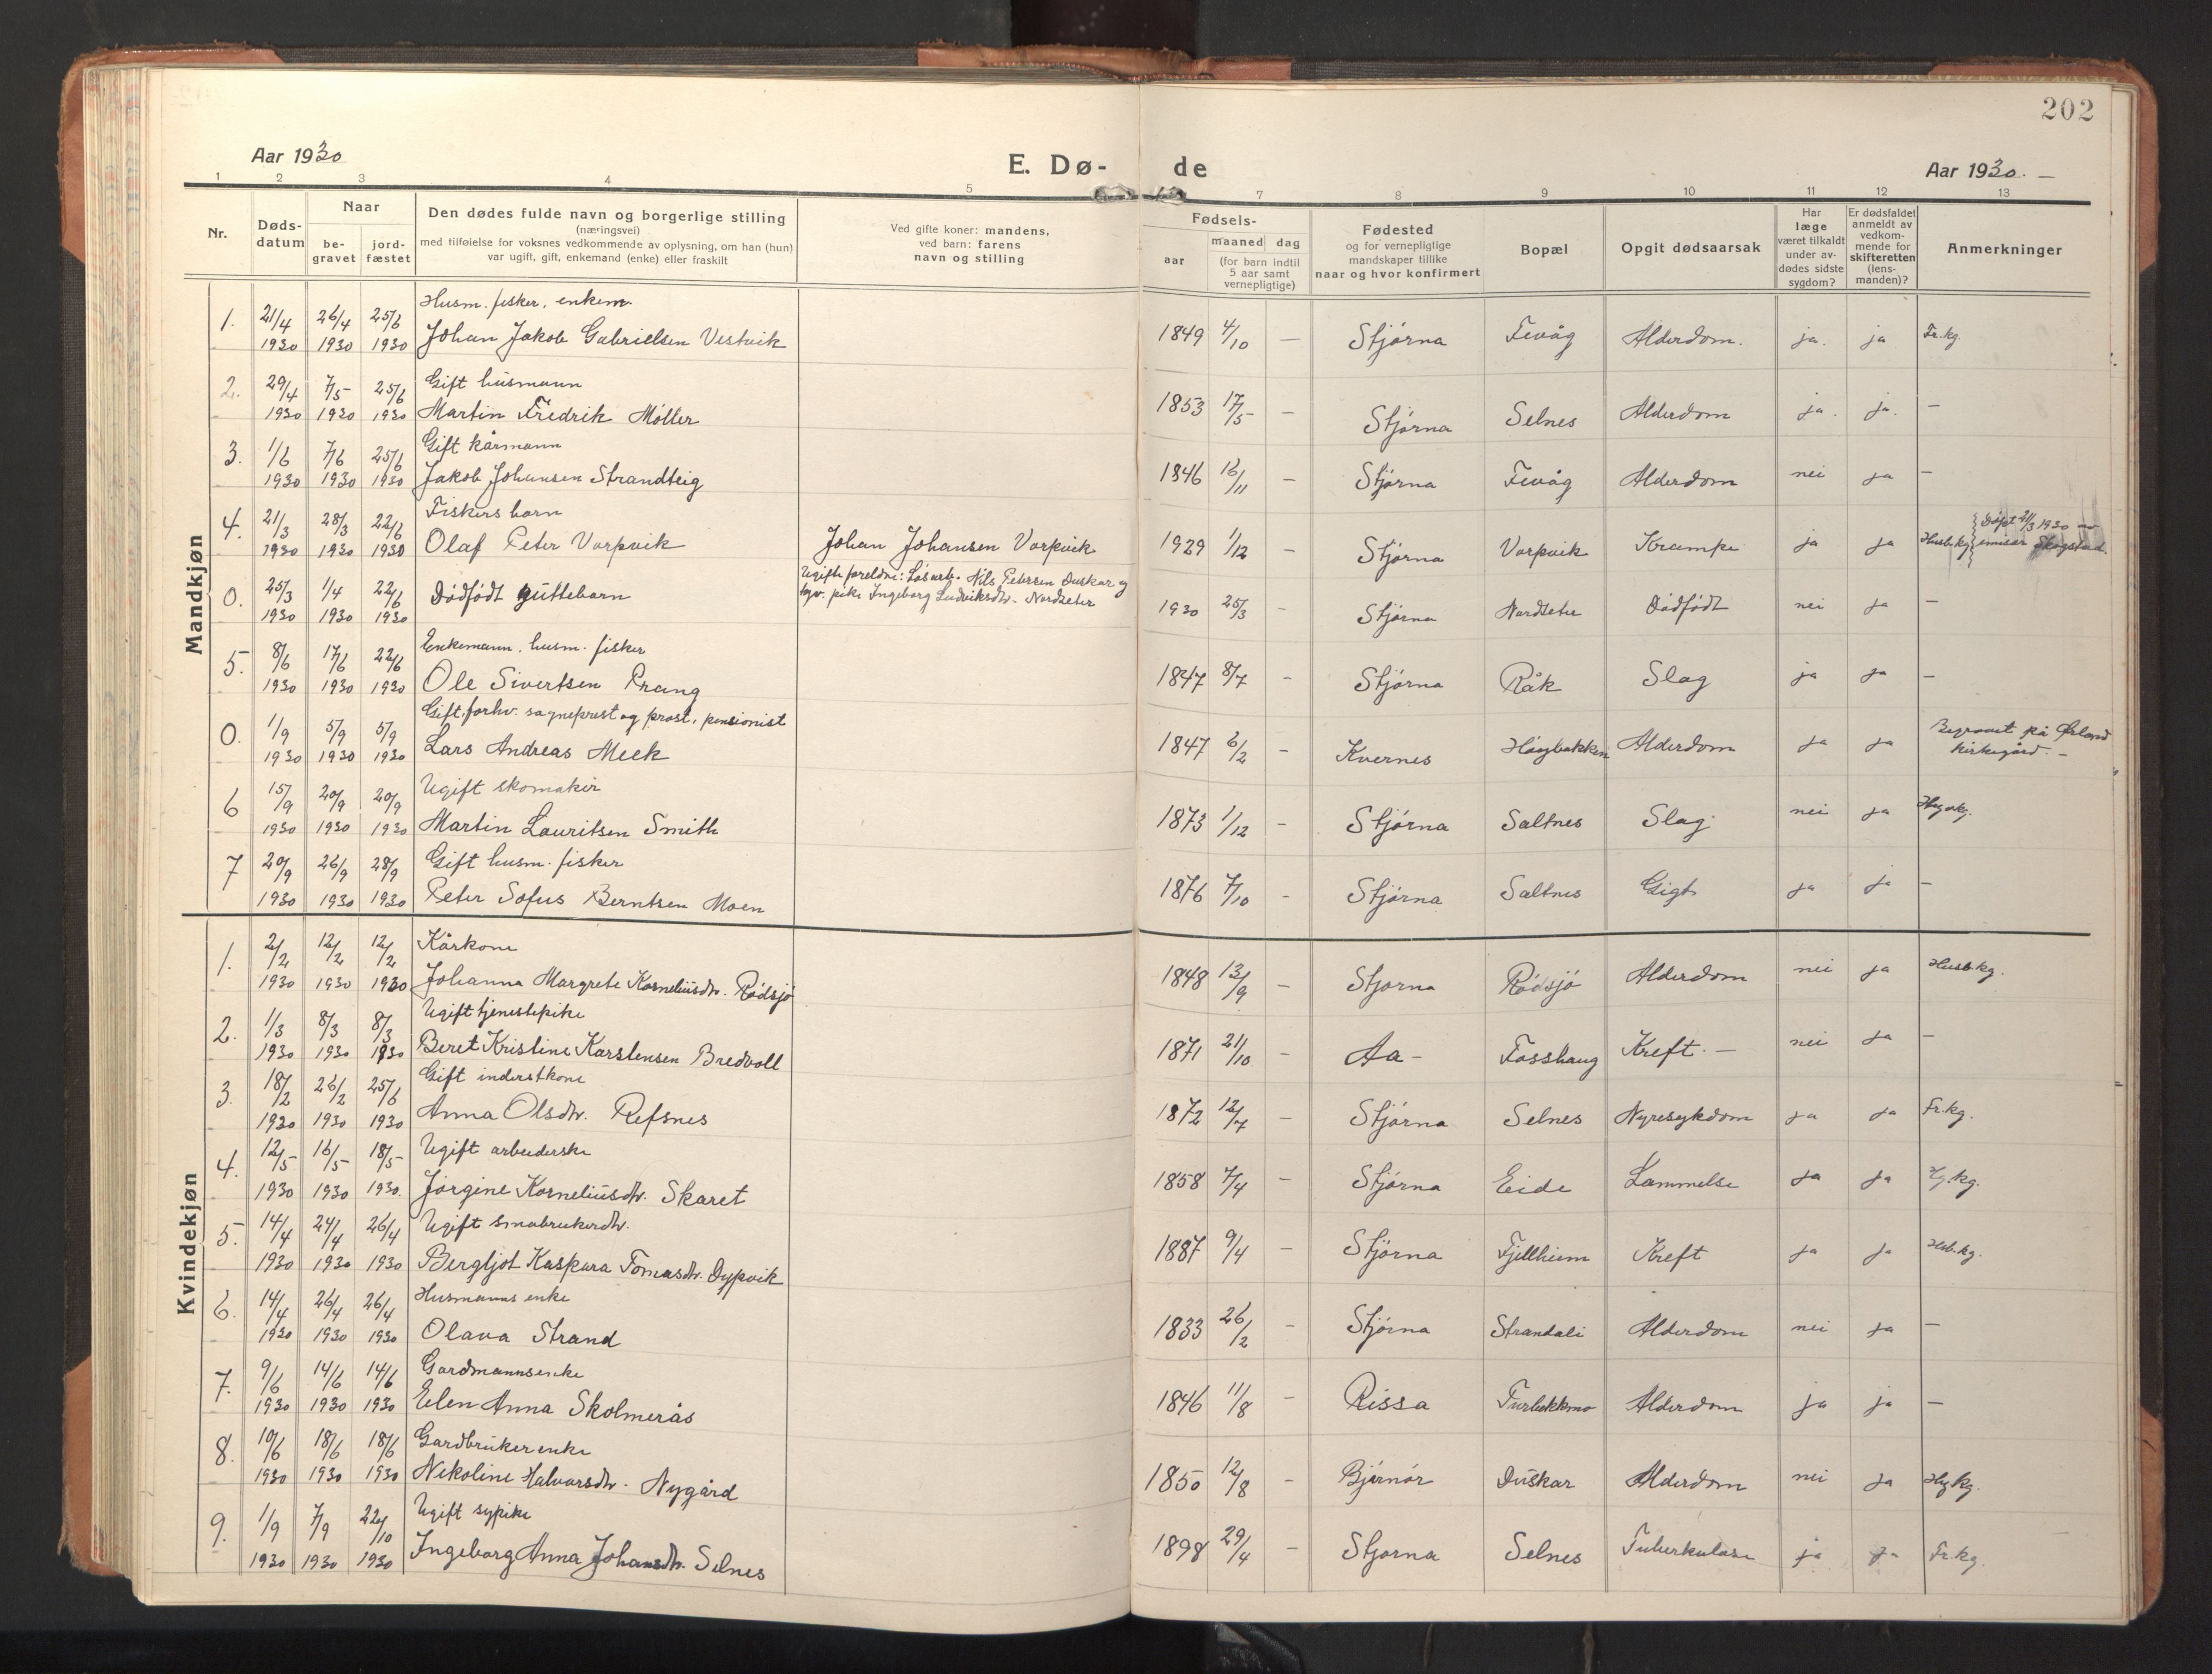 202
Aar 1930
E. Dø-
de
Aar 1930. —
1 2 3 4 5 7 8 9 10 11 12 13
Nr.
Døds-
datum
Naar
be-
gravet
jord-
fæstet
Den dødes fulde navn og borgerlige stilling
(næringsvei)
med tilføielse for voksnes vedkommende av oplysning, om han (hun)
var ugift, gift, enkemand (enke) eller fraskilt
Ved gifte koner: mandens,
ved barn: farens
navn og stilling
Fødsels-
aar
maaned dag
(for barn indtil
5 aar samt
vernepligtige)
Fødested
og for vernepligtige
mandskaper tillike
naar og hvor konfirmert
Bopæl
Opgit dødsaarsak
Har
læge
været tilkaldt
under av-
dødes sidste
sygdom?
Er dødsfaldet
anmeldt av
vedkom-
mende for
skifteretten
(lens-
manden)?
Anmerkninger
Mandkjøn
Husm. fisker, enkem.
1. 21/4 1930 26/4 1930 25/6 1930 Johan Jakob Gabrielsen Vestvik 1849 4/10 — Stjørna Fevåg Alderdom. ja. ja Fr.kg.
Gift husmann
2. 29/4 1930 7/5 1930 25/6 1930 Martin Fredrik Møller 1853 17/5 — Stjørna Selnes Alderdom ja. ja. —
Gift kårmann
3. 1/6 1930 7/6 1930 25/6 1930 Jakob Johansen Strandteig 1846 16/11 — Stjørna Fevåg Alderdom nei ja —
Fiskers barn
4. 21/3 1930 28/3 1930 22/6 1930 Olaf Peter Vorpvik Johan Johansen Vorpvik 1929 1/12 — Stjørna Vorpvik Krampe ja ja Husb.kg. Døpt 21/3 1930 av
emisær Skogstad.
Ugifte foreldre: Løsarb. Nils Petersen Duskar og
0. 25/3 1930 1/4 1930 22/6 1930 Dødfødt guttebarn pike Ingeborg Ludviksdtr. Nordseter 1930 25/3 - Stjørna Nordseter Dødfødt nei ja —
Enkemann, husm. fisker
5. 8/6 1930 17/6 1930 22/6 1930 Ole Sivertsen Prang 1847 8/7 - Stjørna Råk Slag ja ja —
Gift, forhv. sogneprest og prost, pensionist
0. 1/9 1930 5/9 1930 5/9 1930 Lars Andreas Meek 1847 6/2 - Kvernes Høybakken Alderdom ja ja Begravet på Ørland
kirkegård. —
Ugift skomaker
6 15/9 1930 20/9 1930 20/9 1930 Martin Lauritsen Smith 1873 1/12 - Stjørna Saltnes Slag nei ja
Gift husm. fisker
7 20/9 1930 26/9 1930 28/9 1930 Peter Sofus Berntsen Moen 1876 7/10 - Stjørna Saltnes Gigt ja ja —
Kvindekjøn
Kårkone
1. 2/2 1930 12/2 1930 12/2 1930 Johanna Margrete Korneliusdtr. Rødsjø 1848 13/9 - Stjørna Rødsjø Alderdom nei ja Husb.kg.
Ugift tjenestepike
2. 1/3 1930 8/3 1930 8/3 1930 Beret Kristine Karstensen Bredvoll 1871 21/10 - Aa - Fosshaug Kreft. — nei ja —
Gift inderstkone
3. 18/2 1930 26/2 1930 25/6 1930 Anna Olsdtr. Refsnes 1872 12/7 - Stjørna Selnes Nyresykdom ja ja Fr.kg.
Ugift arbeiderske
4. 12/5 1930 16/5 1930 18/5 1930. Jørgine Korneliusdtr. Skaret 1858 7/4 - Stjørna Eide Lammelse ja ja Hg.kg.
Ugift småbrukerdtr.
5. 14/4 1930 24/4 1930 26/4 1930 Bergljot Kaspara Tomasdtr. Dypvik 1887 9/4 - Stjørna Fjellheim Kreft ja ja Hsb.kg.
Husmanns enke
6. 14/4 1930 26/4 1930 26/4 1930 Olava Strand 1833 26/2 - Stjørna Strandali Alderdom nei ja —
Gardmannsenke
7. 9/6 1930 14/6 1930 14/6 1930 Elen Anna Skolmerås 1846 11/8 - Rissa Alderdom ja ja —
Gardbrukerenke
8. 10/6 1930 18/6 1930 18/6 1930 Nekoline Halvorsdtr. Nygård 1850 12/8 - Bjørnør Duskar Alderdom nei ja Hg.kg.
Ugift sypike
9. 1/9 1930 7/9 1930 22/10 1930 Ingeborg Anna Johansdtr. Selnes 1898 29/4 - Stjørna Selnes Tuberkulose ja ja Fr.kg.